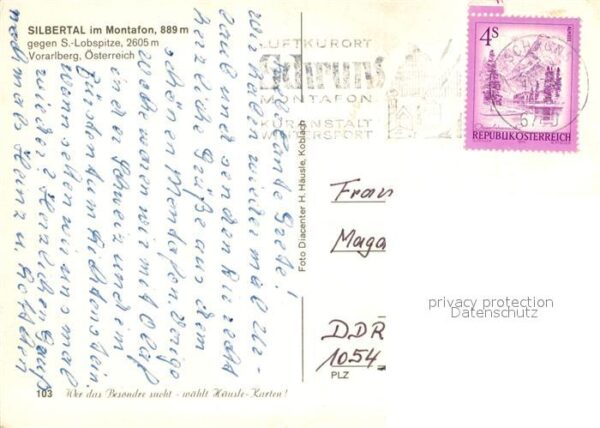 SILBERTAL im Montafon, 889 m
gegen S.-Lobspitze, 2605 m
Vorarlberg, Österreich
LUFTKURORT
Schruns
MONTAFON
KURANSTALT
WINTERSPORT
SCHRUNS
4S
REPUBLIK ÖSTERREICH
Grete!
Wir haben wieder mal Ur-
laub und senden Euch
herzliche Grüße aus dem
schönen Montafon. Vorige
Woche waren wir mit Olaf
in der Schweiz und im
Fürstentum Lichtenstein.
Wann sehen wir uns mal
wieder? Herzlichen Gruß
nochmals Heinz u.
Foto Diacenter H. Häusle, Koblach
Frau
Maga
DDR
1054
PLZ
privacy protection
Datenschutz
103 Wer das Besondre sucht - wählt Häusle-Karten!